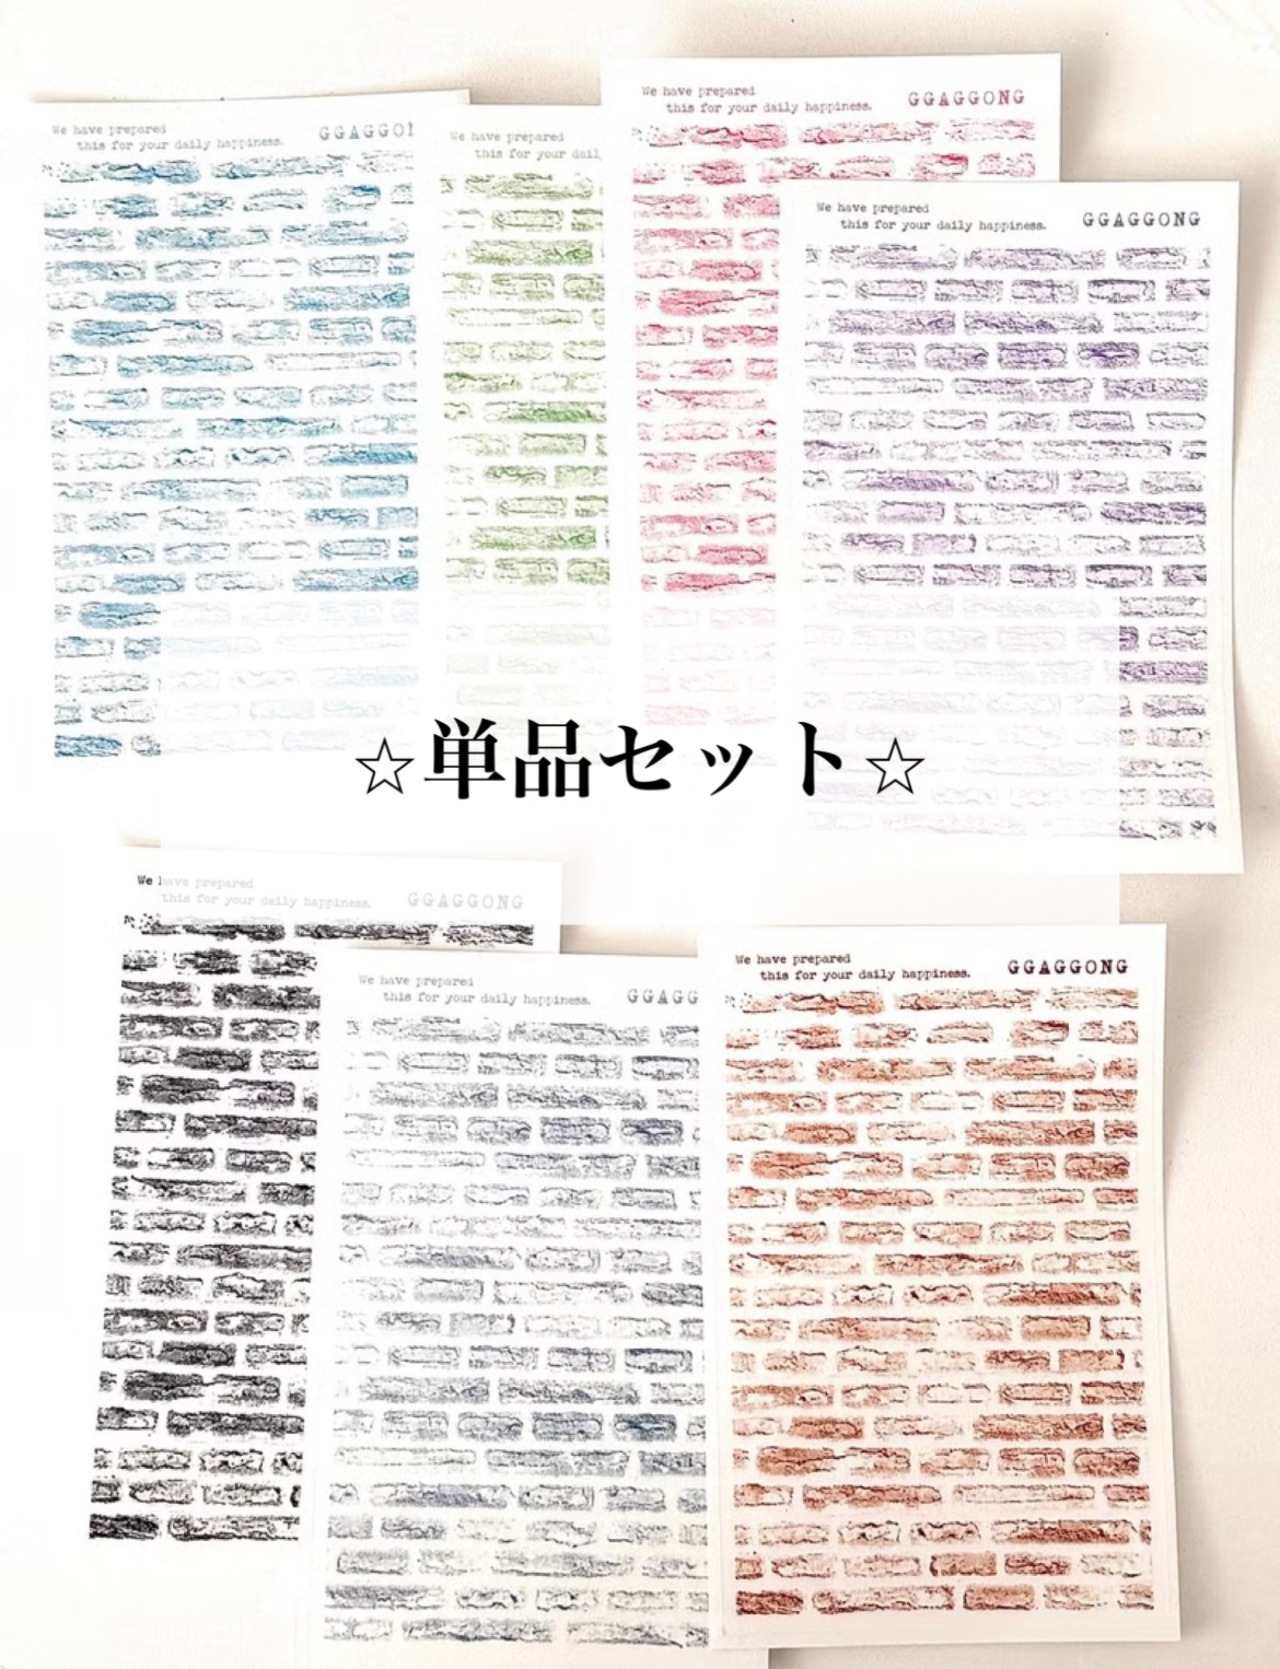 We have prepared
this for your daily happiness.
GGAGGO
We have prepared
this for your dail
We have prepared
this for your daily happiness.
GGAGGONG
We have prepared
this for your daily happiness.
GGAGGONG
☆単品セット☆
We have prepared
this for your daily happiness.
GGAGGONG
We have prepared
this for your daily happiness.
GGAGG
We have prepared
this for your daily happiness.
GGAGGONG